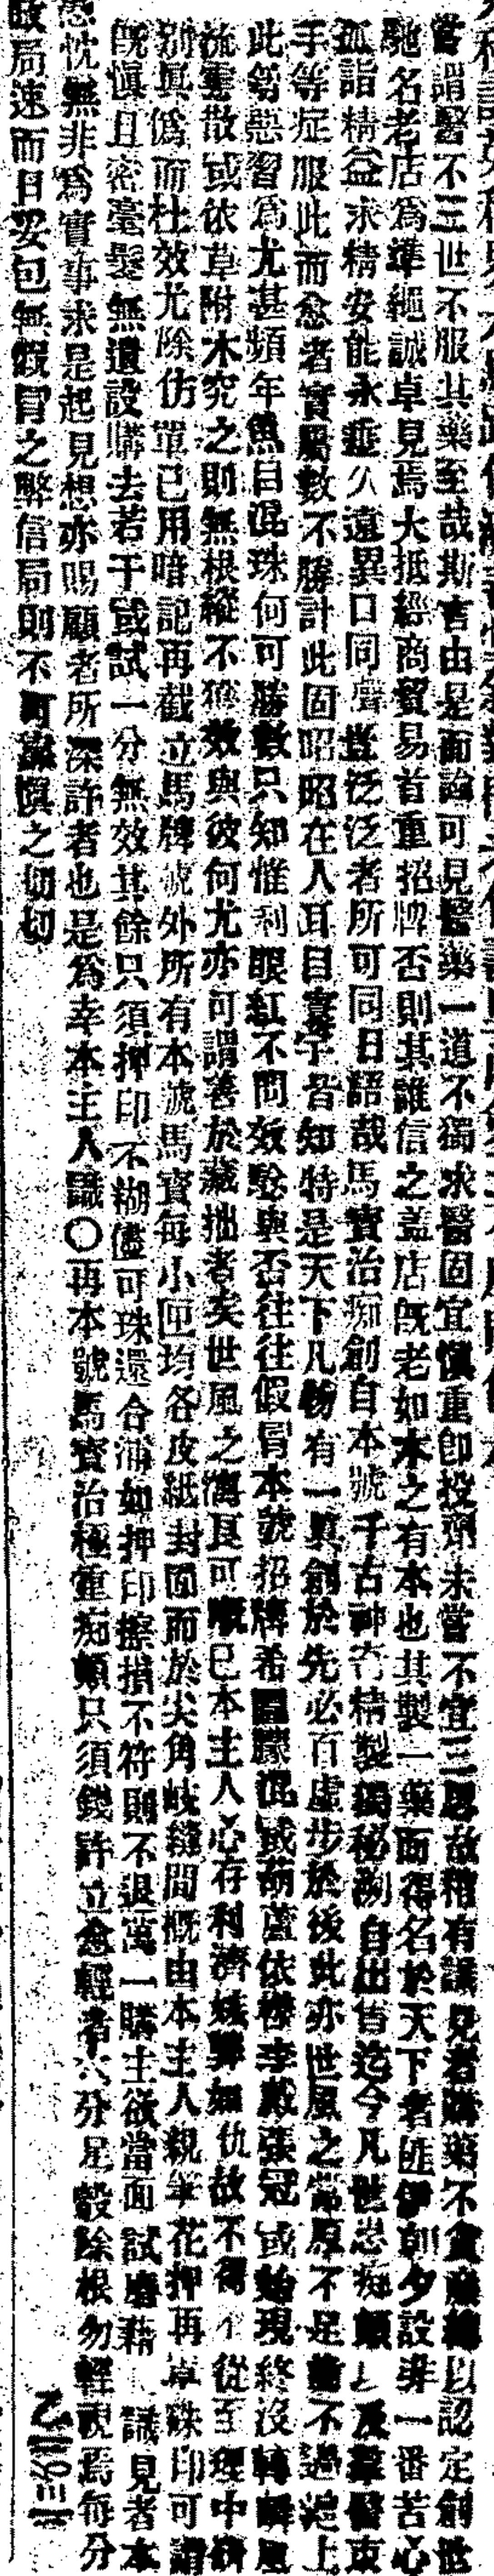 嘗謂醫不三世不服其藥至哉斯言由是而論可見醫藥一道不獨求醫固宜慎重即投劑未嘗不宜三思故稍有識見者購藥不貪廉總以認定創世
馳名老店為準繩誠卓見焉大抵經商貿易首重招牌否則其誰信之蓋店既老如木之有本也其製一藥而得名於天下者匪伊朝夕設非一番苦心
孤詣精益求精安能永垂久遠異口同聲豈泛泛者所可同日語哉馬寶治痴創自本號千古神奇精製獨秘剙自出售迄今凡世患痴顛及羣醫束
手等症服此而愈者實屬數不勝計此固昭昭在人耳目寰宇皆知特是天下凡物有一真創於先必百虛步於後此亦世風之常原不足不過滬上
此等惡習為尤甚頻年魚目混珠何可勝數只知惟利眼紅不問效驗與否往往假冒本號招牌希圖朦混或葫蘆依樣李戴張冠或始現終沒轉瞬風
流雲散或依草附木究之則無根蹤不獲效與彼何尤亦可謂善於藏拙者矣世風之漓良可慨已本主人心存利濟嫉弊如仇故不得不從至理中
別真偽而杜效尤除仿單已用暗記再截立馬牌號外所有本號馬寶每小匣均各皮紙封固而於尖角岐縫間概由本主人親筆花押再草硃印可謂
既慎且密毫髮無遺設購去若干或試一分無效其餘只須押印不糊儘可珠還合浦如押印擦損不符則不退萬一購主欲當面試磨藉 識見者本
愚忱無非為實事求是起見想亦賜顧者所深許者也是為幸本主人識〇再本號馬寶治極重痴顛只須錢許立愈輕者六分足彀除根勿輕視焉每分
故局速而且妥包無假冒之弊信局則不可 慎之切切